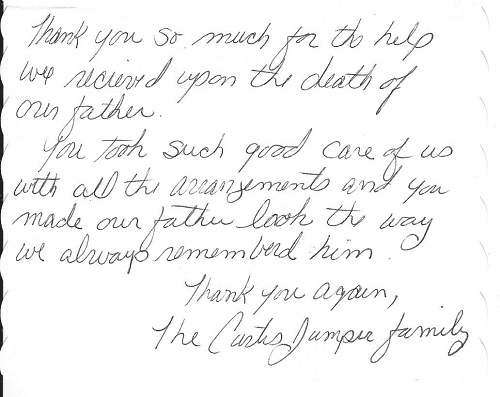 Thank you so much for the help
we recieved upon the death of
our father.
You took such good care of us
with all the arrangements and you
made our father look the way
we always rememberd him.
Thank you again,
The Curtis Jumper family